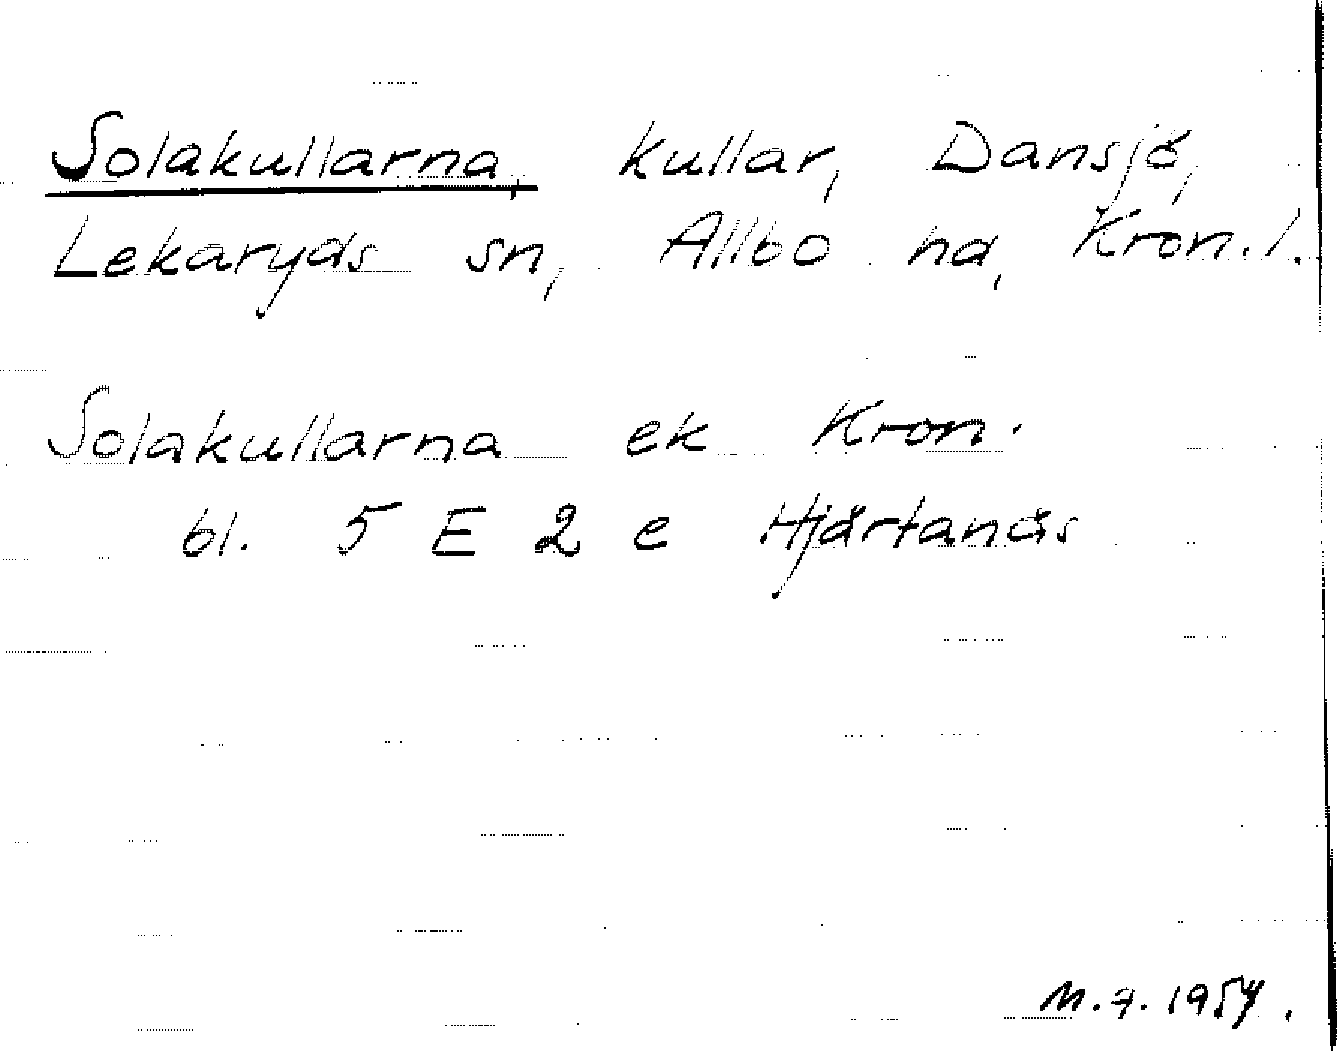 Solakullarna, kullar, Dansjö,
Lekaryds sn, Allbo hd, Kron. l.
Solakullarna ek Kron.
bl. 5 E 2 e Hjärtanäs
M. 7. 1954.